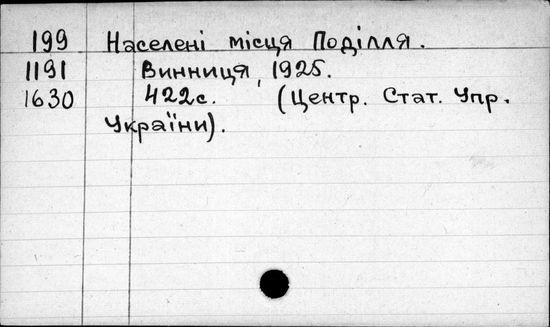 199 Населені місця Поділля.
1191 Винниця, 1925.
1630 422с. (Центр. Стат. Упр.
України).